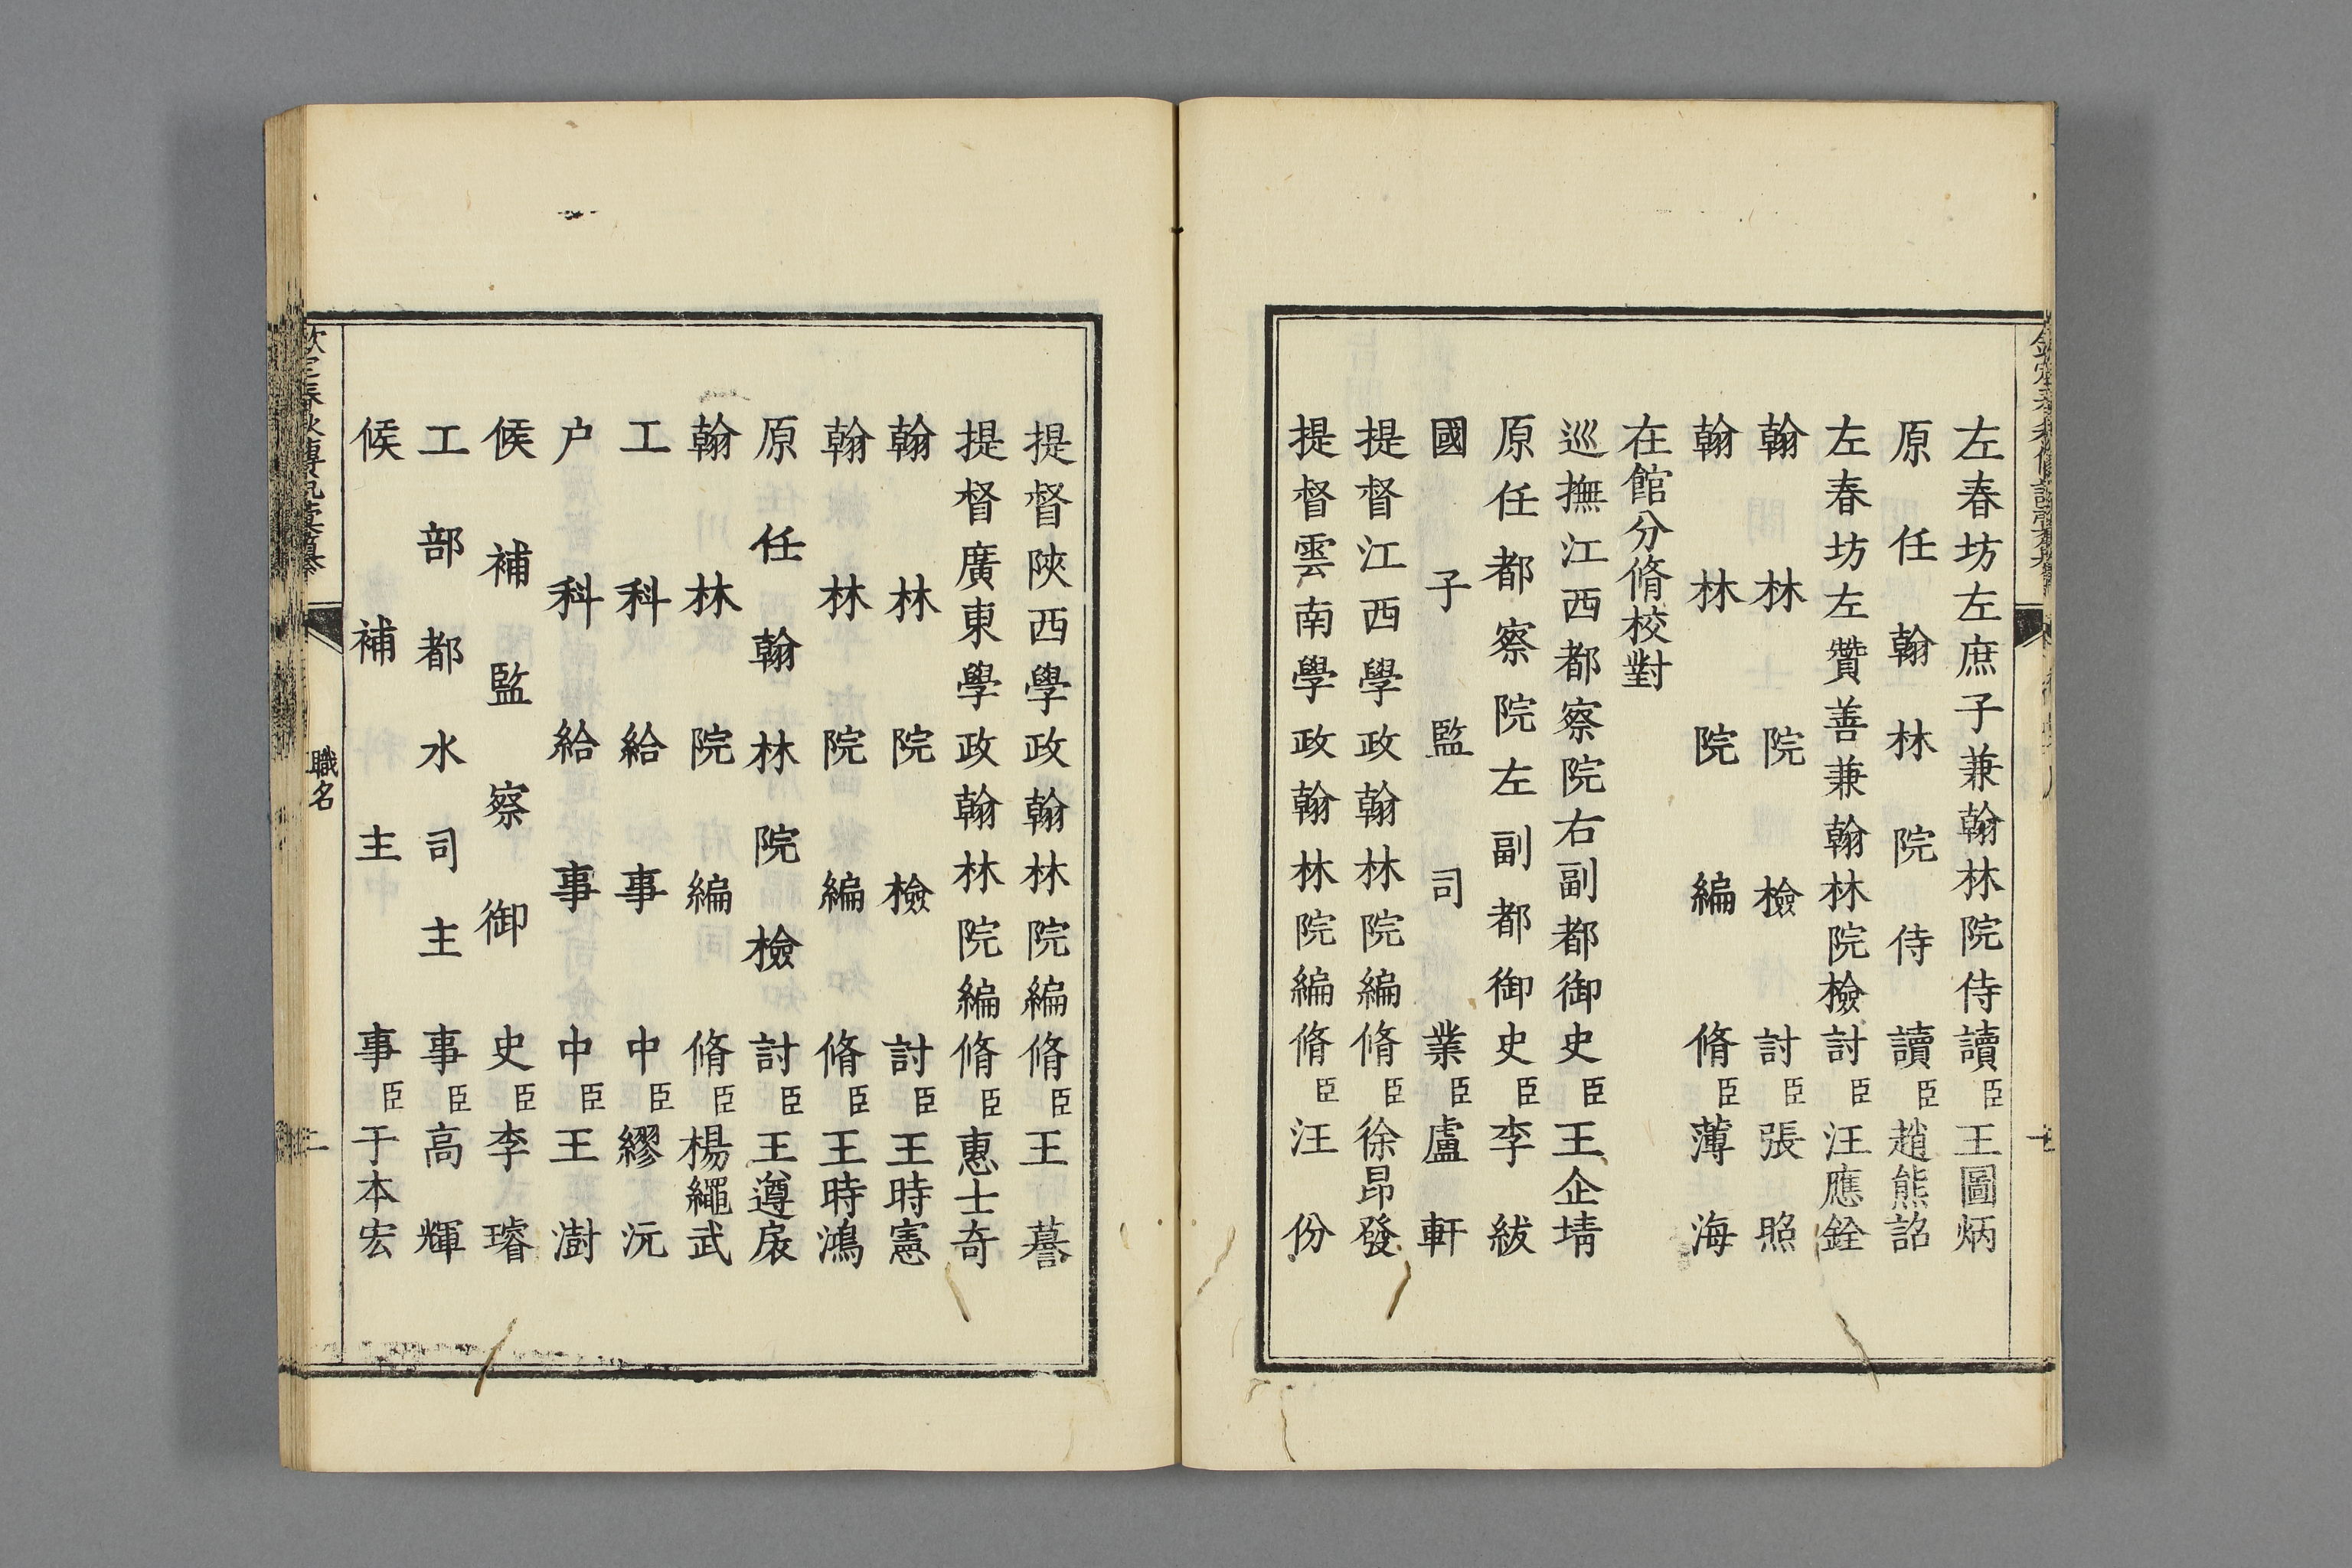 左春坊左庶子兼翰林院侍讀臣王圖炳
原任翰林院侍讀臣趙熊詔
左春坊左贊善兼翰林院檢討臣汪應銓
翰林院檢討臣張照
翰林院編脩臣薄海
在館分脩校對
巡撫江西都察院右副都御史臣王企埥
原任都察院左副都御史臣李紱
國子監司業臣盧軒
提督江西學政翰林院編脩臣徐昂發
提督雲南學政翰林院編脩臣汪份
提督陝西學政翰林院編脩臣王謩
提督廣東學政翰林院編脩臣惠士奇
翰林院檢討臣王時憲
翰林院編脩臣王時鴻
原任翰林院檢討臣王遵扆
翰林院編脩臣楊繩武
工科給事中臣繆沅
户科給事中臣王澍
候補監察御史臣李璿
工部都水司主事臣高輝
候補主事臣于本宏
欽定春秋傳說彙纂
職名
二